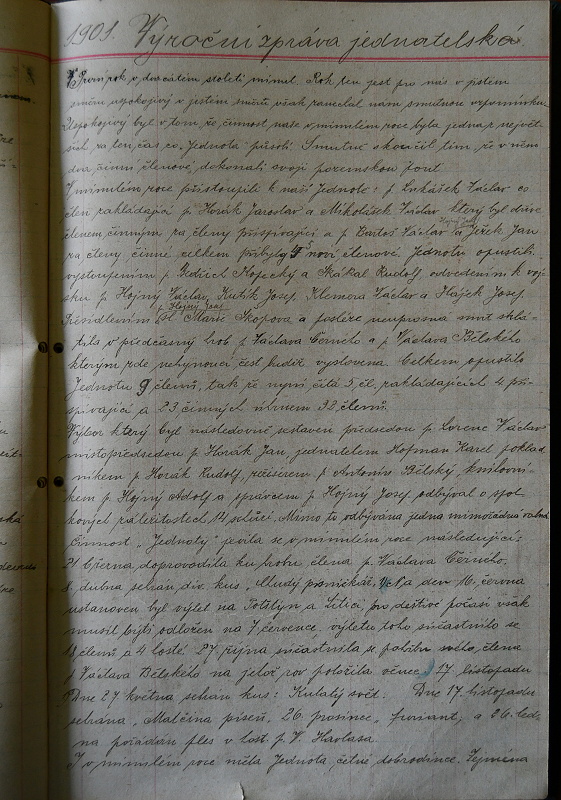 1901. Výroční zpráva jednatelská.
Prvni rok v dvacátém století minul. Rok ten jest pro nás v jistém
směru uspokojivý v jistém směru však zanechal nám smutnou vzpomínku.
Uspokojivý byl v tom, že činnost naše v minulém roce byla jedna z největ-
ších za ten čas co Jednota působí. Smutně skončil tím, že v něm
dva činní členové dokonali svoji pozemskou pouť.
V minulém roce přistoupili k naší Jednotě: p. Lukášek Václav co
člen zakládající p. Horák Jaroslav a Mikolášek Václav který byl dříve
členem činným za členy přispívající a p. Bartoš Václav a Ježek Jan
za členy činné celkem přibylo 5 noví členové. Jednotu opustili
vystoupením p. Kopecký a Skákal Rudolf, odvedením k voj-
sku p. Hojný Václav, Kutík Josef, Klemera Václav a Hájek Josef.
p. Hojný
Přesídlením sl. Marie Škopova a posléze neúprosná smrt sklá-
tila v předčasný hrob p. Václava Černého a p. Václava Bělského
kterým zde nehynoucí čest budiž vyslovena. Celkem opustilo
Jednotu 9 členů, tak že nyní čítá 5 čl. zakládajících 4 při-
spívající a 23 činných úhrnem 32 členů.
Výbor který byl následovně sestaven předsedou p. Lorenc Václav
místopředsedou p. Horák Jan, jednatelem Hofman Karel poklad-
níkem p. Horák Rudolf, režisérem p. Antonín Bělský knihovní-
kem p. Hojný Adolf a správcem p. Hojný Josef odbýval o spol-
kových záležitostech 14 schůzí. Mimo to odbývána jedna mimořádná valná
Činnost „Jednoty" jevila se v minulém roce následující:
21 března doprovodila ku hrobu člena p. Václava Černého.
8. dubna sehrán div. kus „Mladý písničkář". Na den 16. června
ustanoven byl výlet na Potštýn a Litice, pro deštivé počasí však
musil býti odložen na 7 července, výletu toho súčastnilo se
18 členů a 4 hosté. 27. října súčastnila se pohřbu svého člena
p. Václava Bělského na jehož rov položila věnec. 17 listopadu
Dne 27 května sehrán kus: Kulatý svět. Dne 17. listopadu
sehrána „Malčina píseň", 26. prosince „Furiant", a 26. led-
na pořádán ples v host. p. V. Havlasa.
I v minulém roce měla Jednota četné dobrodince. Zejména